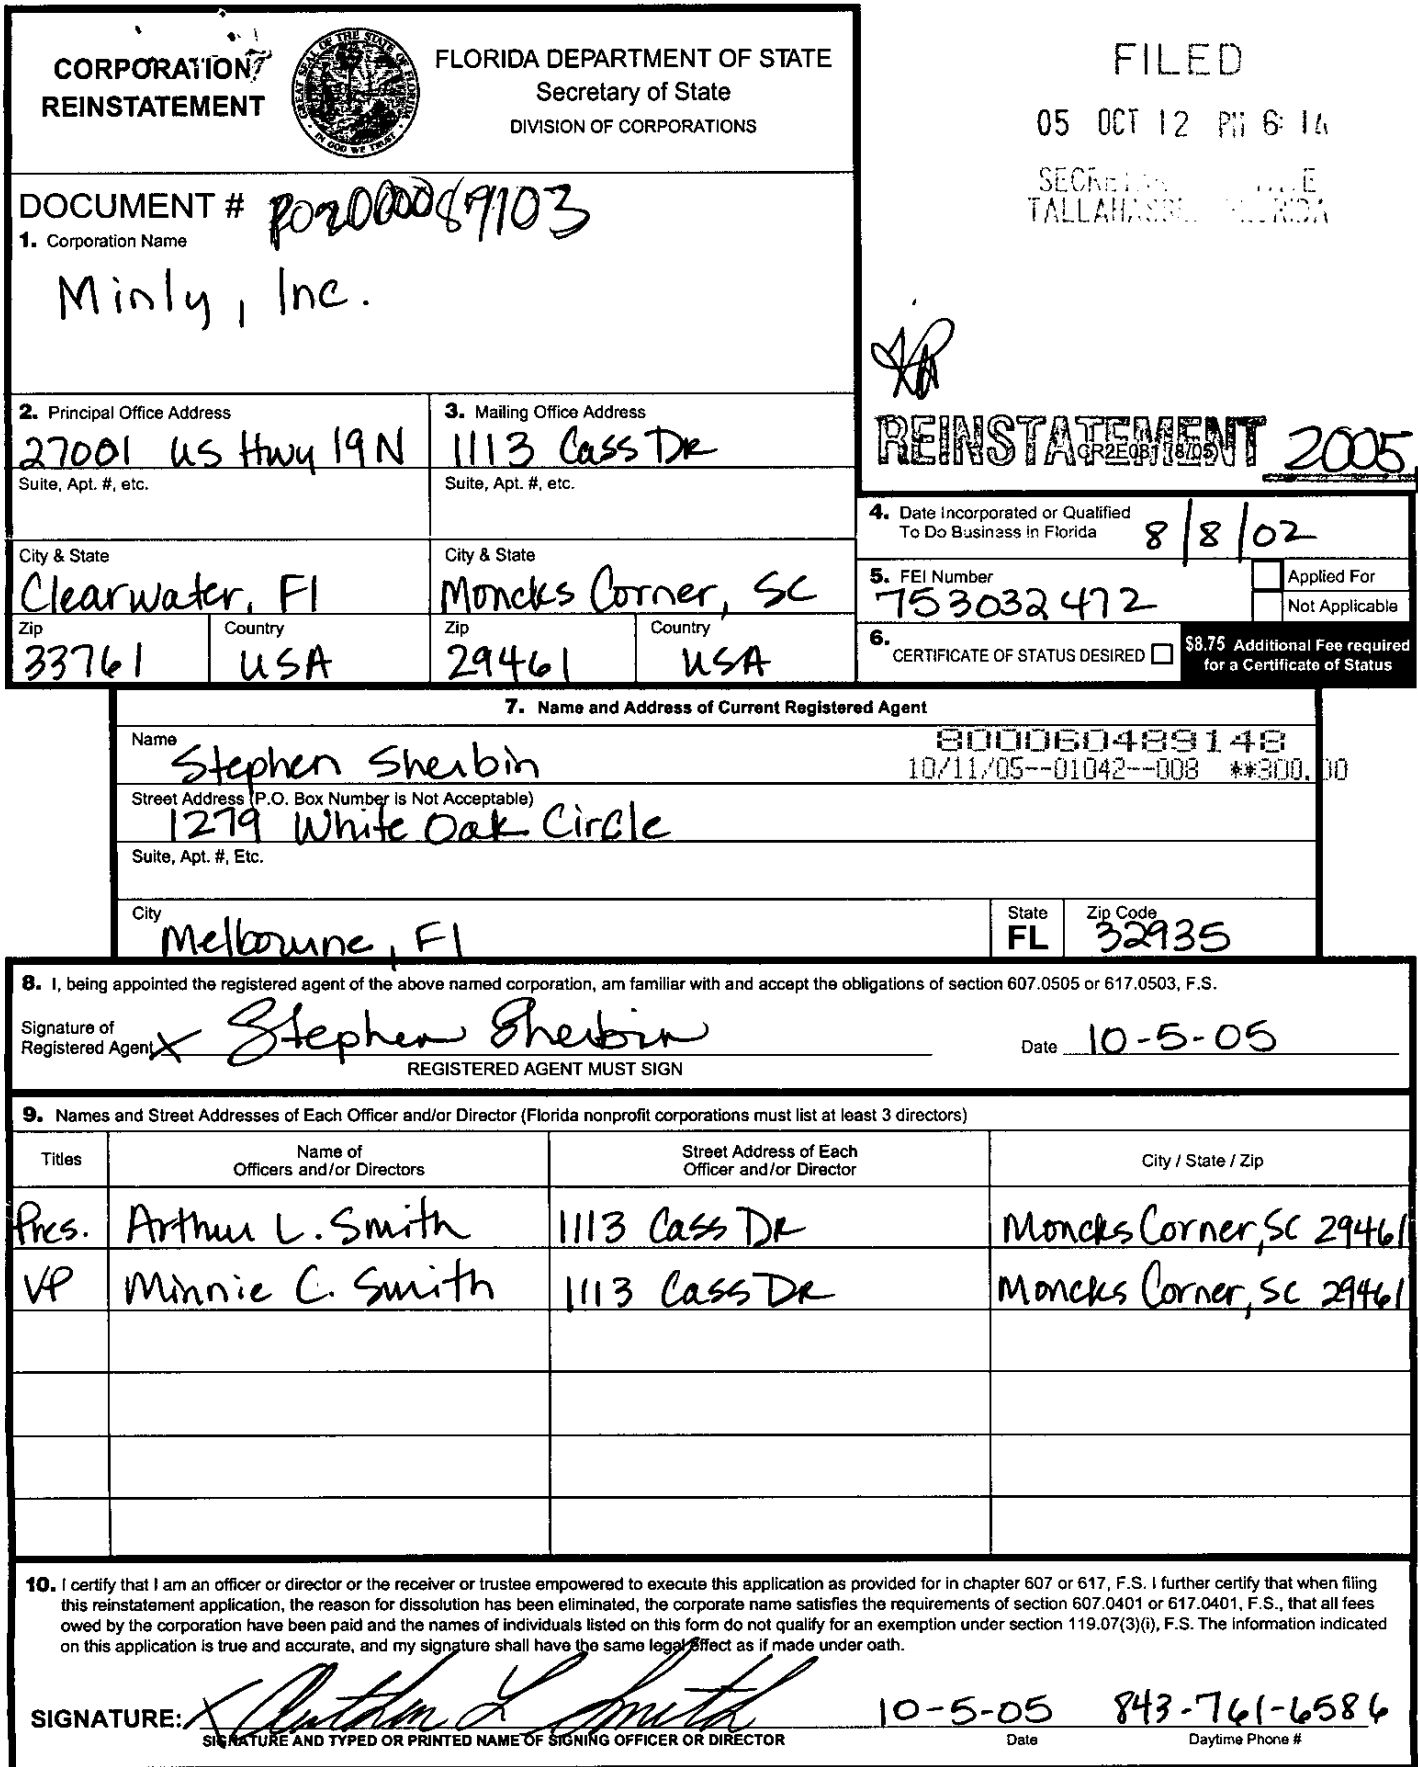 CORPORATION
REINSTATEMENT
GREAT SEAL OF THE STATE OF FLORIDA
IN GOD WE TRUST
FLORIDA DEPARTMENT OF STATE
Secretary of State
DIVISION OF CORPORATIONS
FILED
05 OCT 12 PM 6:14
TALLAHASSEE FLORIDA
DOCUMENT # P02000089103
1. Corporation Name
Minly, Inc.
REINSTATEMENT 2005
CR2E081 (8/05)
2. Principal Office Address
27001 US Hwy 19N
Suite, Apt. #, etc.
3. Mailing Office Address
1113 Cass DR
Suite, Apt. #, etc.
4. Date Incorporated or Qualified
To Do Business in Florida
8/8/02
City & State
Clearwater, Fl
City & State
Moncks Corner, SC
5. FEI Number
753032472
Applied For
Not Applicable
Zip
33761
Country
USA
Zip
29461
Country
USA
6.
CERTIFICATE OF STATUS DESIRED
$8.75 Additional Fee required
for a Certificate of Status
7. Name and Address of Current Registered Agent
Name
Stephen Sherbin
800060489148
10/11/05--01042--008 **300.00
Street Address (P.O. Box Number is Not Acceptable)
1279 White Oak Circle
Suite, Apt. #, Etc.
City
Melbourne, Fl
State
FL
Zip Code
32935
8. I, being appointed the registered agent of the above named corporation, am familiar with and accept the obligations of section 607.0505 or 617.0503, F.S.
Signature of
Registered Agent X Stephen Sherbin
REGISTERED AGENT MUST SIGN
Date 10-5-05
9. Names and Street Addresses of Each Officer and/or Director (Florida nonprofit corporations must list at least 3 directors)
Titles
Name of
Officers and/or Directors
Street Address of Each
Officer and/or Director
City / State / Zip
Pres. Arthur L. Smith 1113 Cass DR Moncks Corner, SC 29461
VP Minnie C. Smith 1113 Cass DR Moncks Corner, SC 29461
10. I certify that I am an officer or director or the receiver or trustee empowered to execute this application as provided for in chapter 607 or 617, F.S. I further certify that when filing
this reinstatement application, the reason for dissolution has been eliminated, the corporate name satisfies the requirements of section 607.0401 or 617.0401, F.S., that all fees
owed by the corporation have been paid and the names of individuals listed on this form do not qualify for an exemption under section 119.07(3)(i), F.S. The information indicated
on this application is true and accurate, and my signature shall have the same legal effect as if made under oath.
SIGNATURE: X Arthur L Smith 10-5-05 843-761-6586
SIGNATURE AND TYPED OR PRINTED NAME OF SIGNING OFFICER OR DIRECTOR
Date
Daytime Phone #